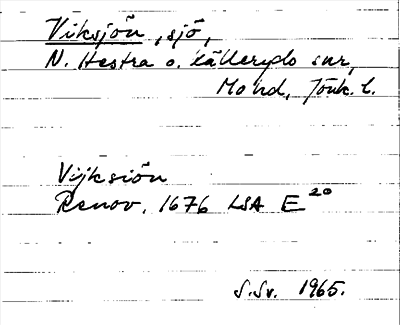 Viksjön, sjö,
N. Hestra o. Källeryds snr,
Mo hd, Jönk. l.
Vijksiön
Renov. 1676 LSA E 20
S.Sv. 1965.